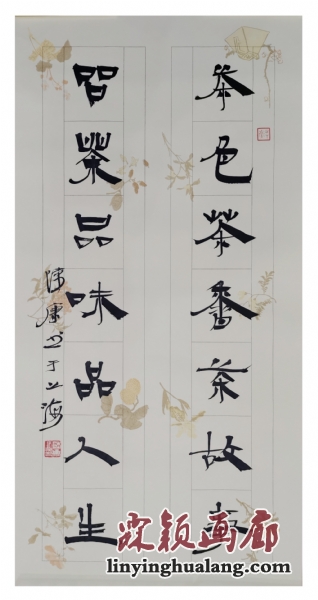 茶色茶香茶故事
品茶品味品人生
陈康书于上海
霖颖画廊
linyinghualang.com